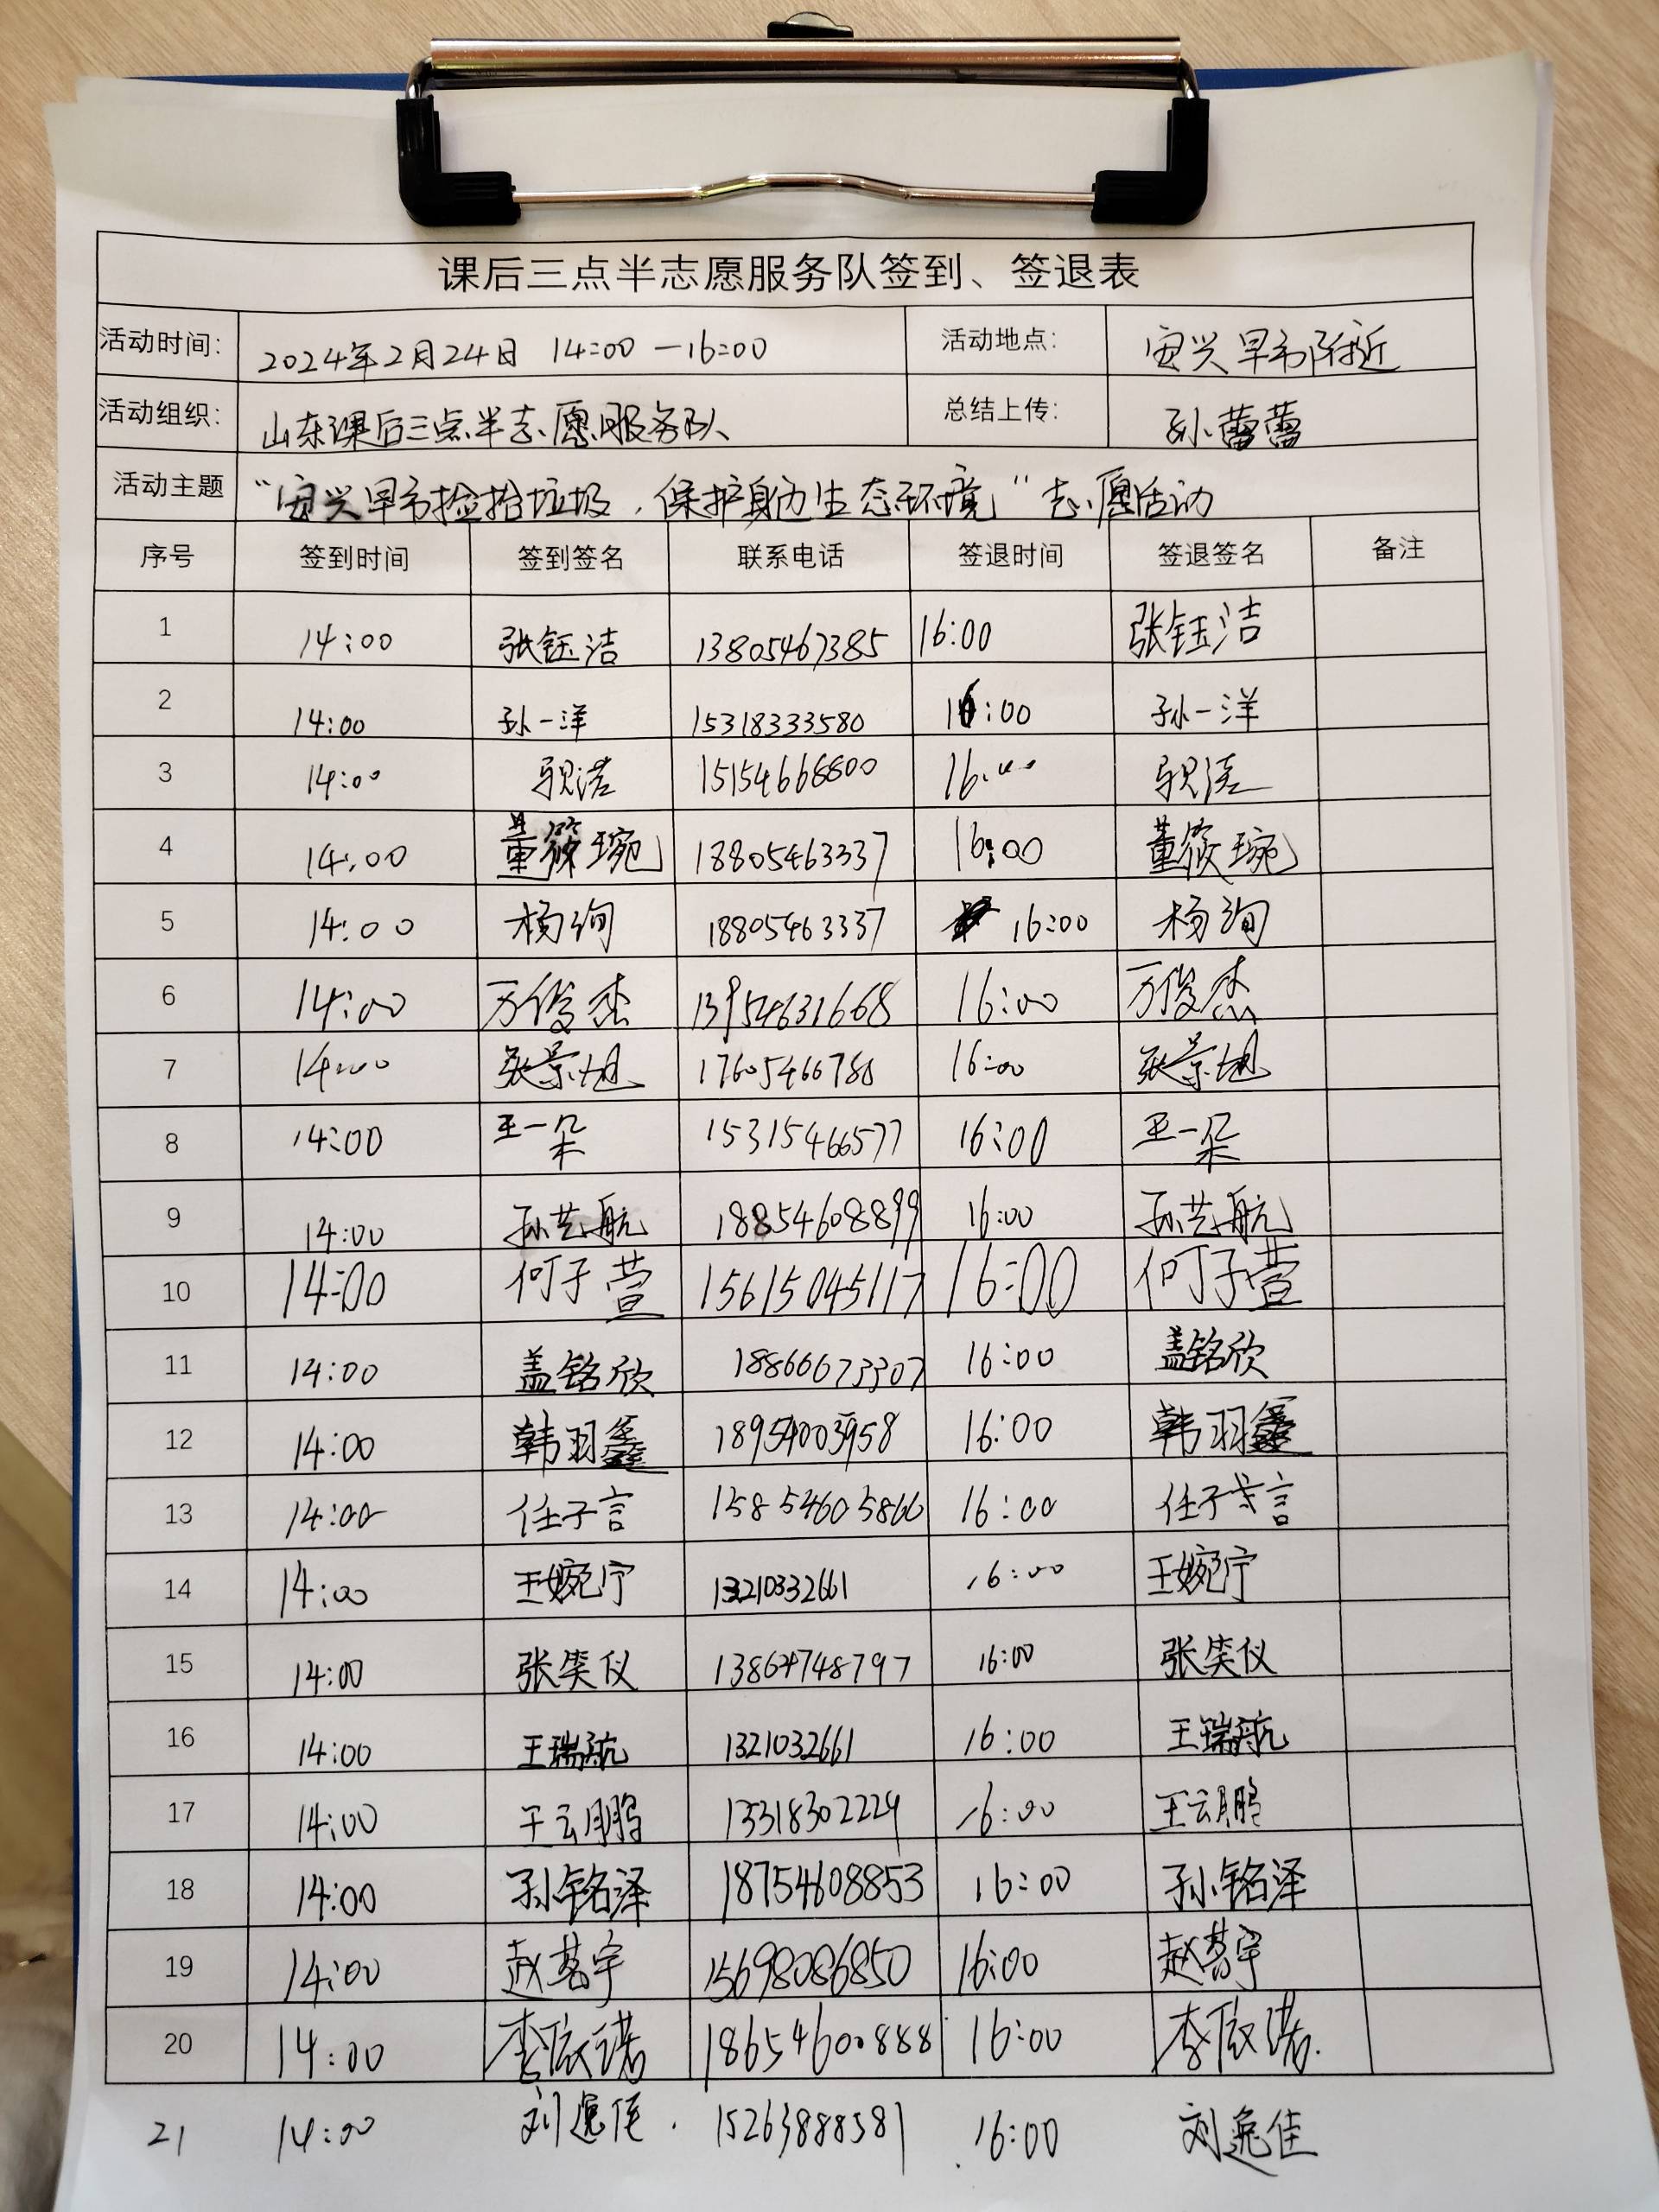 课后三点半志愿服务队签到、签退表
活动时间: 2024年2月24日 14:00—16:00 活动地点: 安兴早市附近
活动组织: 山东课后三点半志愿服务队 总结上传: 孙蕾蕾
活动主题 “安兴早市捡拾垃圾，保护身边生态环境”志愿活动
序号 签到时间 签到签名 联系电话 签退时间 签退签名 备注
1 14:00 张钰洁 13805467385 16:00 张钰洁
2 14:00 孙一洋 15318333580 16:00 孙一洋
3 14:00 15154668800 16:00
4 14:00 董筱琬 18805463337 16:00 董筱琬
5 14:00 杨询 18805463337 16:00 杨询
6 14:00 万俊杰 13954631668 16:00 万俊杰
7 14:00 张景旭 16:00 张景旭
8 14:00 王一朵 15315466577 16:00 王一朵
9 14:00 孙艺航 18854608899 16:00 孙艺航
10 14:00 何子萱 15615045117 16:00 何子萱
11 14:00 盖铭欣 18866673307 16:00 盖铭欣
12 14:00 韩羽鑫 16:00 韩羽鑫
13 14:00 任子言 15854605866 16:00 任子言
14 14:00 王婉宁 13210332661 16:00 王婉宁
15 14:00 张笑仪 13864748797 16:00 张笑仪
16 14:00 王瑞航 1321032661 16:00 王瑞航
17 14:00 王云鹏 13318302229 16:00 王云鹏
18 14:00 孙铭泽 18754608853 16:00 孙铭泽
19 14:00 赵茗宇 15698086850 16:00 赵茗宇
20 14:00 李依诺 18654600888 16:00 李依诺
21 14:00 刘逸佳 15263888581 16:00 刘逸佳